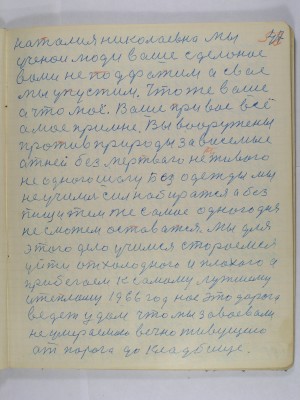 49
наталия николаевна мы
ученои люди ваше сделоное
вами не поддражим а свае
мы упустим. Что же ваше
а что мое. Ваше при вас всё
а мое при мне. Вы вооружены
против природы зависемые
а тней без мертваго не живого
не одного числу Без одежды мы
не учимся сил набиратся а без
пищи тем же самае одного дня
не сможем оставатся. Мы для
этого дело учимся стораемся
уйти от холодного и плохого и
прибегаем к самому лужшому
и тепламу 1966 год нас это дорога
ведет у дом что мы завоевали
не умираемо вечно живущего
от порога до кладбище.